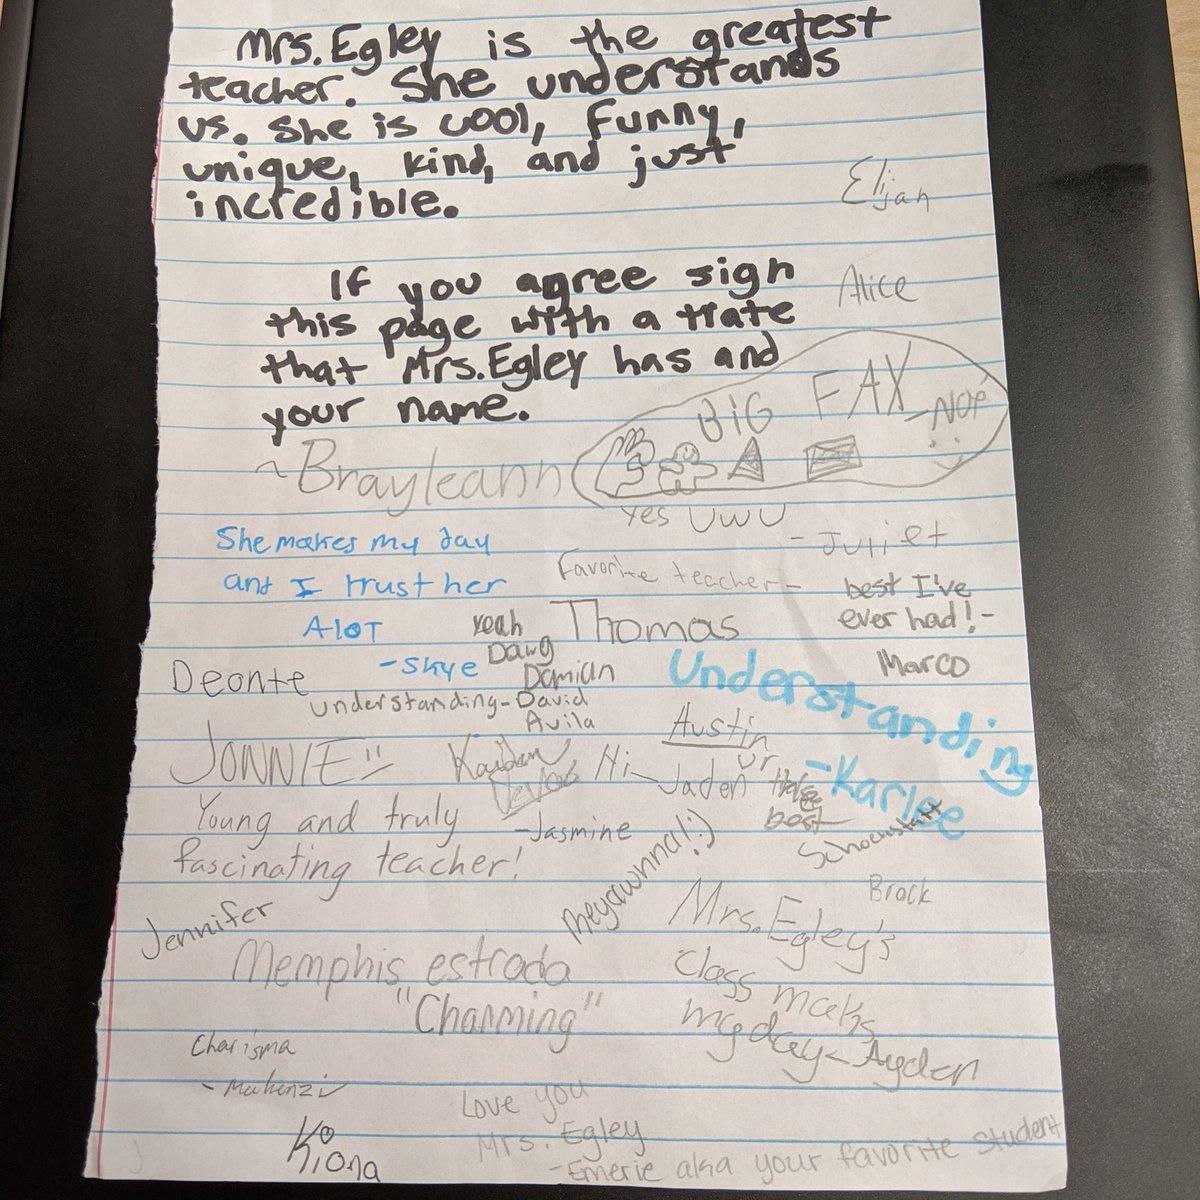 Mrs. Egley is the greatest
teacher. She understands
us. She is cool, funny,
unique, kind, and just
incredible.
Elijah
If you agree sign
this page with a trate
that Mrs. Egley has and
your name.
Alice
BiG FAX
NOPE
~Brayleann
yes UWU
- Juliet
She makes my day
and I trust her
AloT
-Skye
Favorite teacher-
Thomas
best I've
ever had!-
Marco
yeah
Dawg
Damian
Deonte
understanding-David
Avila
Understanding
-Karlee
JONNIE
Kaiden
Hi-
Austin
Jaden
ur
the
best
Schoenstatt
Young and truly
fascinating teacher!
-Jasmine
Meyawnna!:)
Brock
Jennifer
Mrs. Egley's
class maks
my day- Ayden
Memphis estrada
"Charming"
Charisma
- Makenzi
Kiona
Love you
Mrs. Egley
-Emerie aka your favorite student